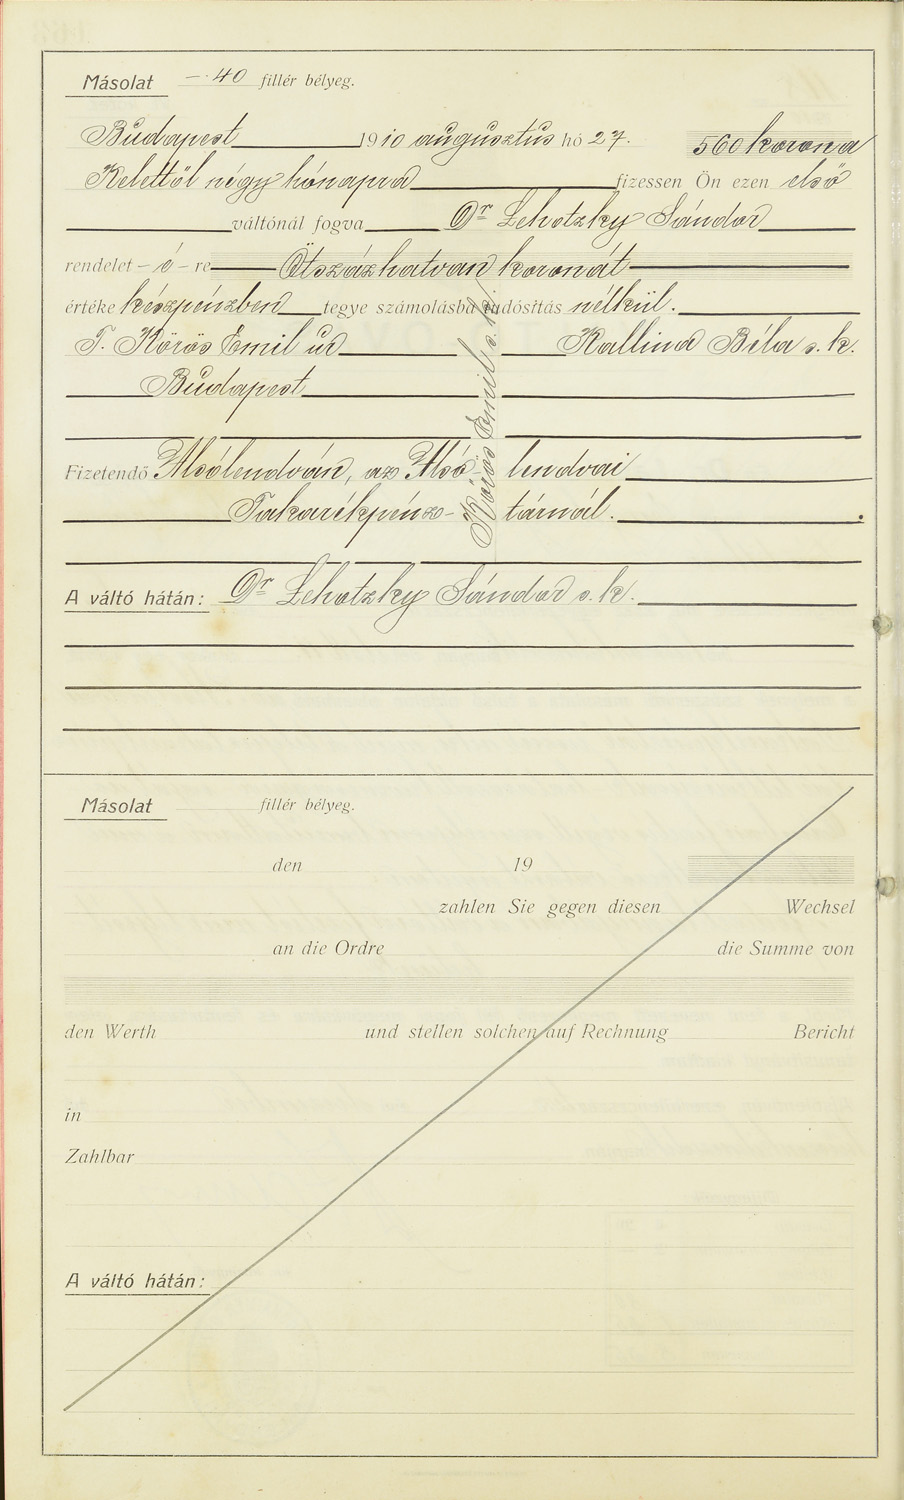 Másolat —·40 fillér bélyeg.
Budapest 1910 augusztus hó 27. 560 korona
Kelettől négy hónapra fizessen Ön ezen első
váltónál fogva Dr Lehotzky Sándor
rendelet – é – re Ötszázhatvan koronát
értéke készpénzben tegye számolásba tudósítás nélkül.
T. Körös Emil úr Kallina Béla s. k.
Budapest
Körös Emil s. k.
Fizetendő Alsólendván, az Alsó-lendvai
Takarékpénz-tárnál.
A váltó hátán: Dr Lehotzky Sándor s. k.
Másolat fillér bélyeg.
den 19
zahlen Sie gegen diesen Wechsel
an die Ordre die Summe von
den Werth und stellen solchen auf Rechnung Bericht
in
Zahlbar
A váltó hátán: